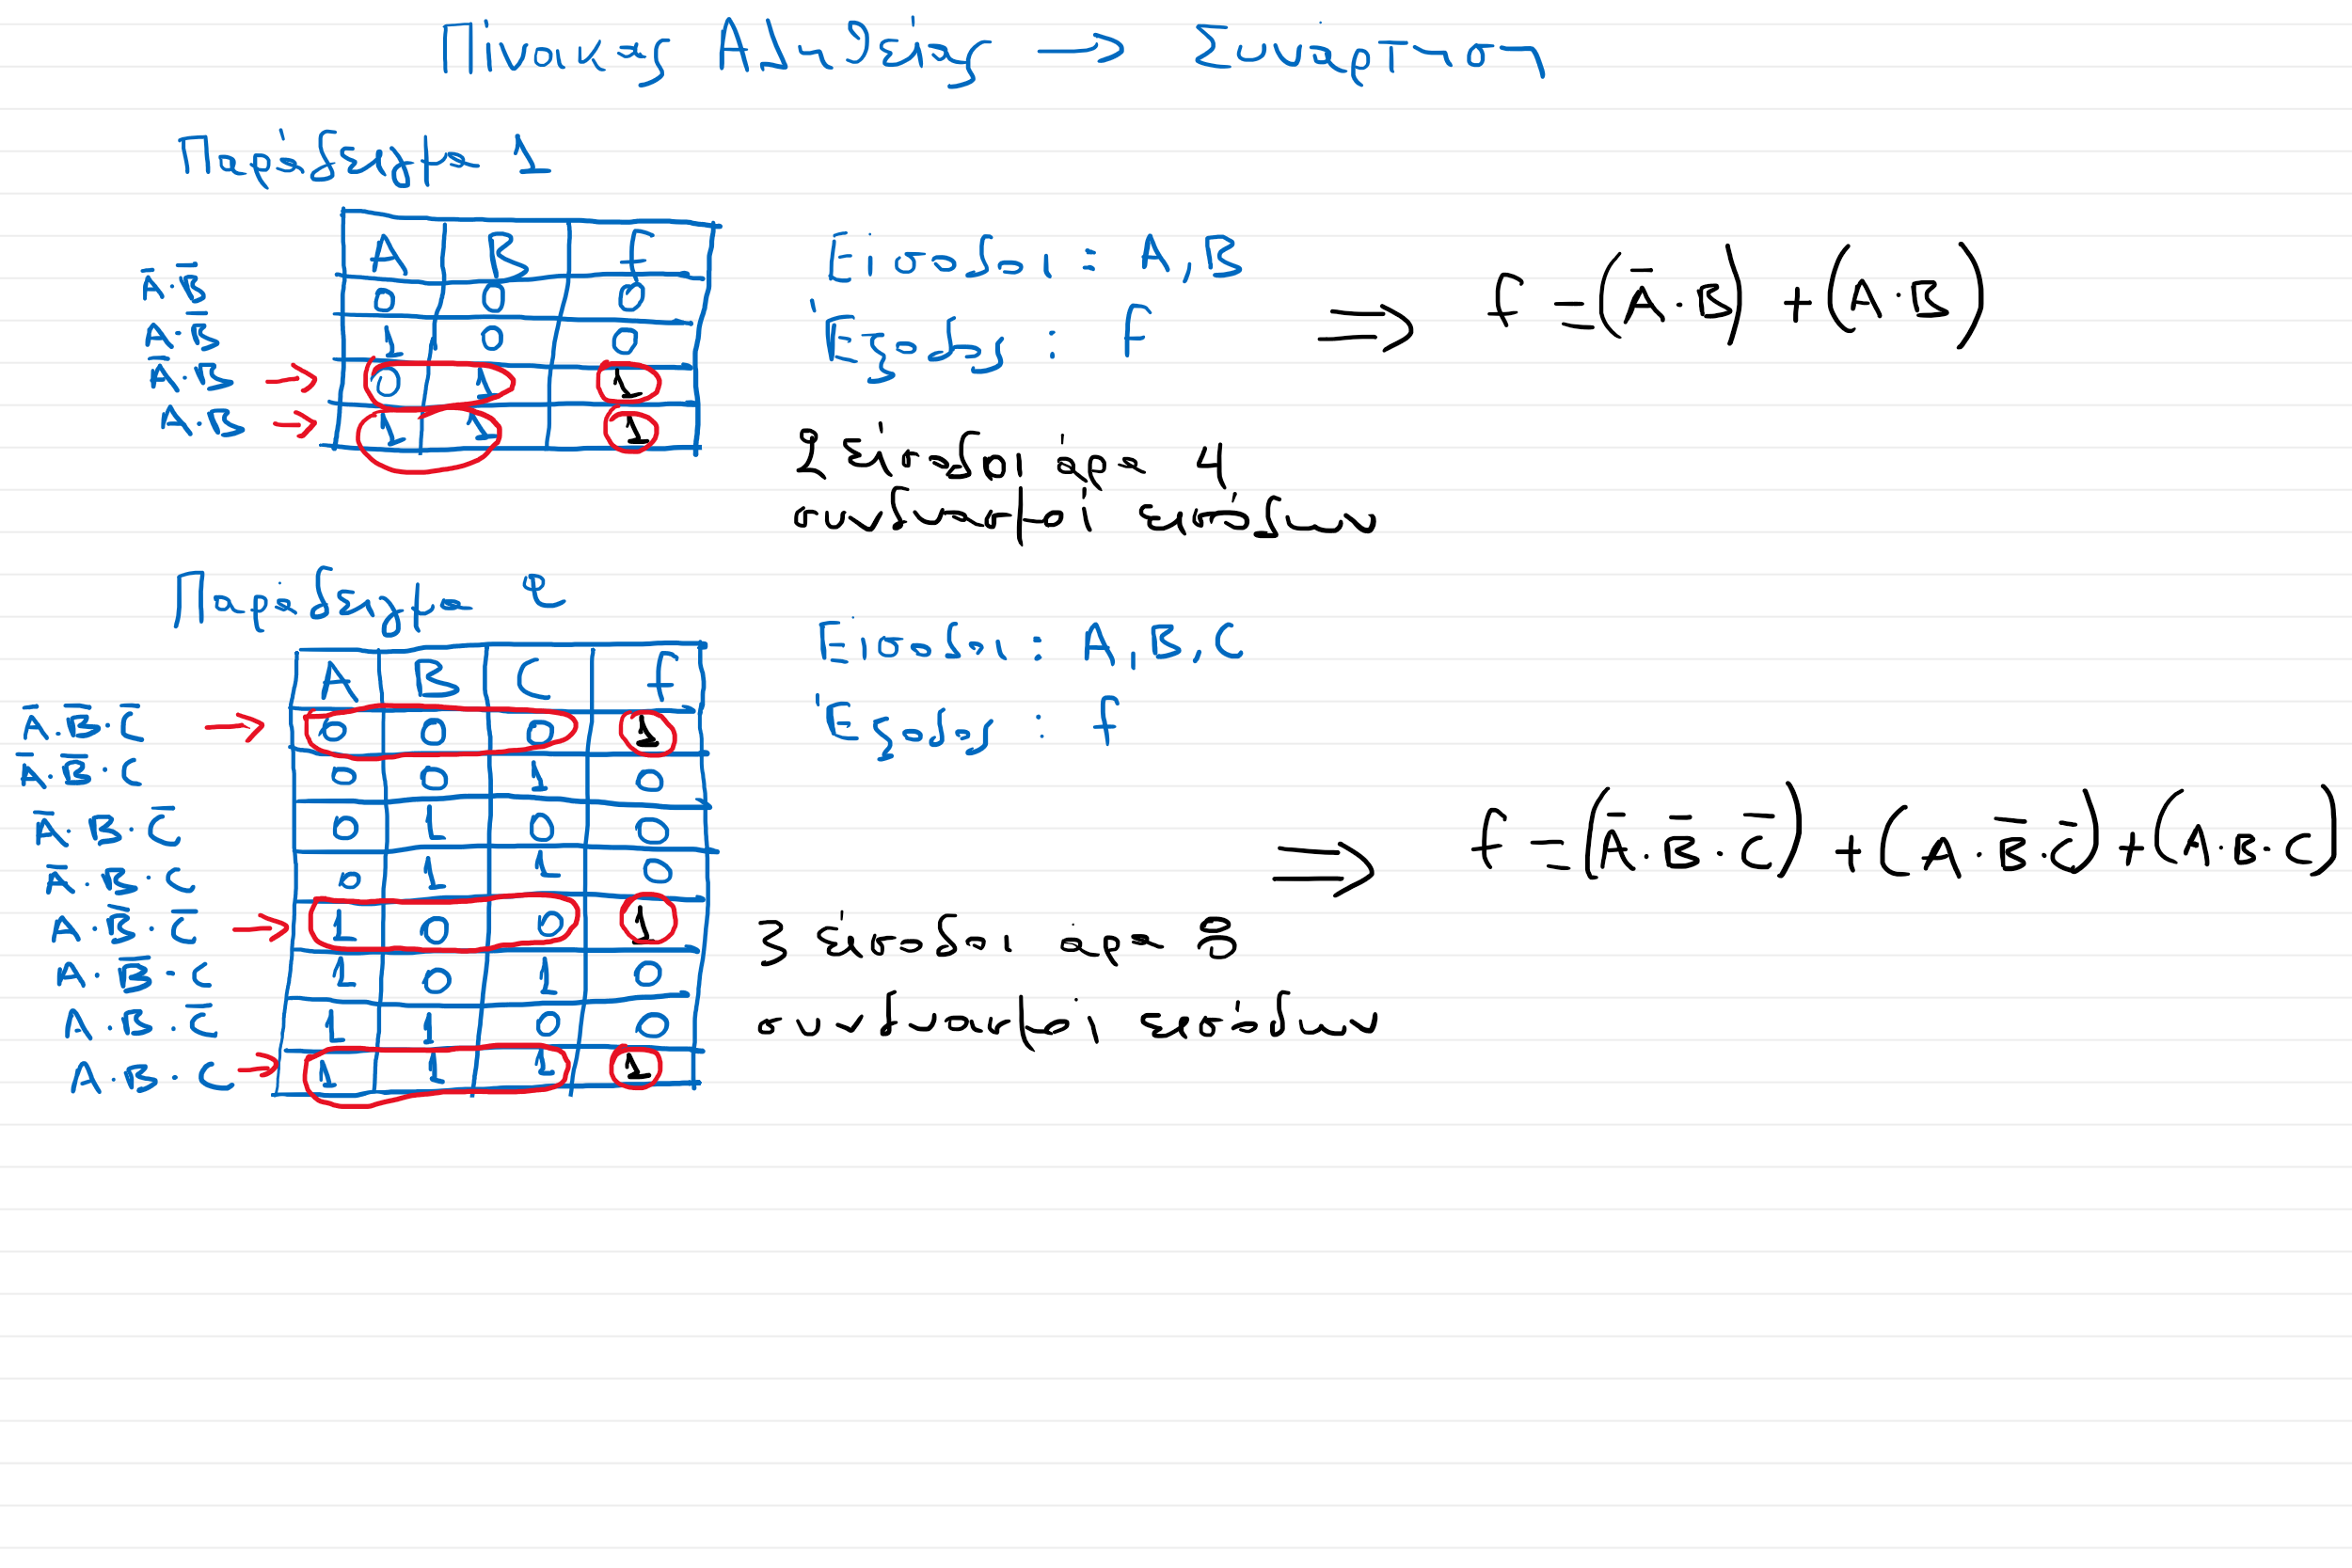 Πίνακας Αληθείας → Συνάρτηση
Παράδειγμα 1
A B f
A̅·B̅ 0 0 0
A·B̅ 1 0 0
A̅·B → 0 1 1
A·B → 1 1 1
Είσοδοι : A, B
Έξοδος : f
⇒ f = (A̅·B) + (A·B)
2 είσοδοι άρα 4
συνδυασμοί εισόδων
Παράδειγμα 2
A B C f
A̅·B̅·C̅ → 0 0 0 1
A̅·B̅·C 0 0 1 0
A̅·B·C̅ 0 1 0 0
A̅·B·C 0 1 1 0
A·B̅·C̅ → 1 0 0 1
A·B̅·C 1 0 1 0
A·B·C̅ 1 1 0 0
A·B·C → 1 1 1 1
Είσοδοι : A, B, C
Έξοδος : f
⇒ f = (A̅·B̅·C̅) + (A·B̅·C̅) + (A·B·C)
3 είσοδοι άρα 8
συνδυασμοί εισόδων